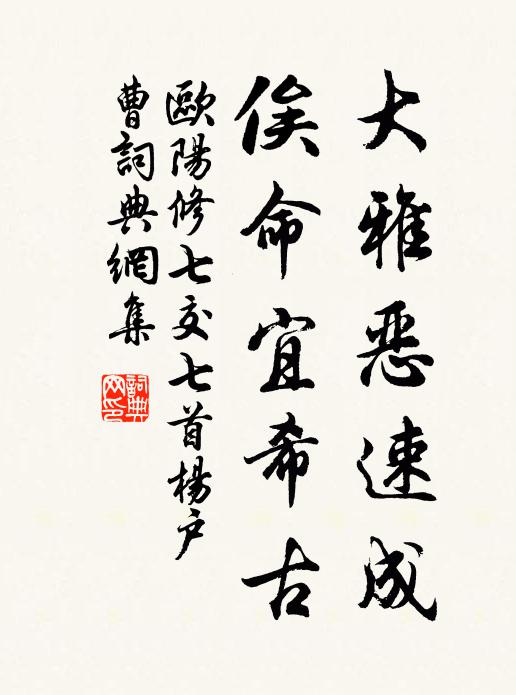 大雅惡速成
俟命宜希古
歐陽修七交七首楊戶
曹詞典網集
詞典網印